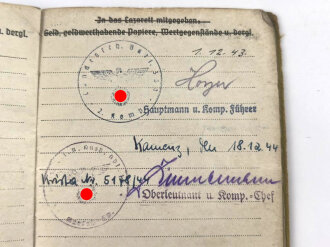 u. dergl.
In das Lazarett mitgegeben.
Geld, geldwerthabende Papiere, Wertgegenstände u. dergl.
1.12.43.
Hoyer
Hauptmann u. Komp. Führer
Kamenz, den 18.12.44
5178/44
Zimmermann
Oberleutnant u. Komp.-Chef